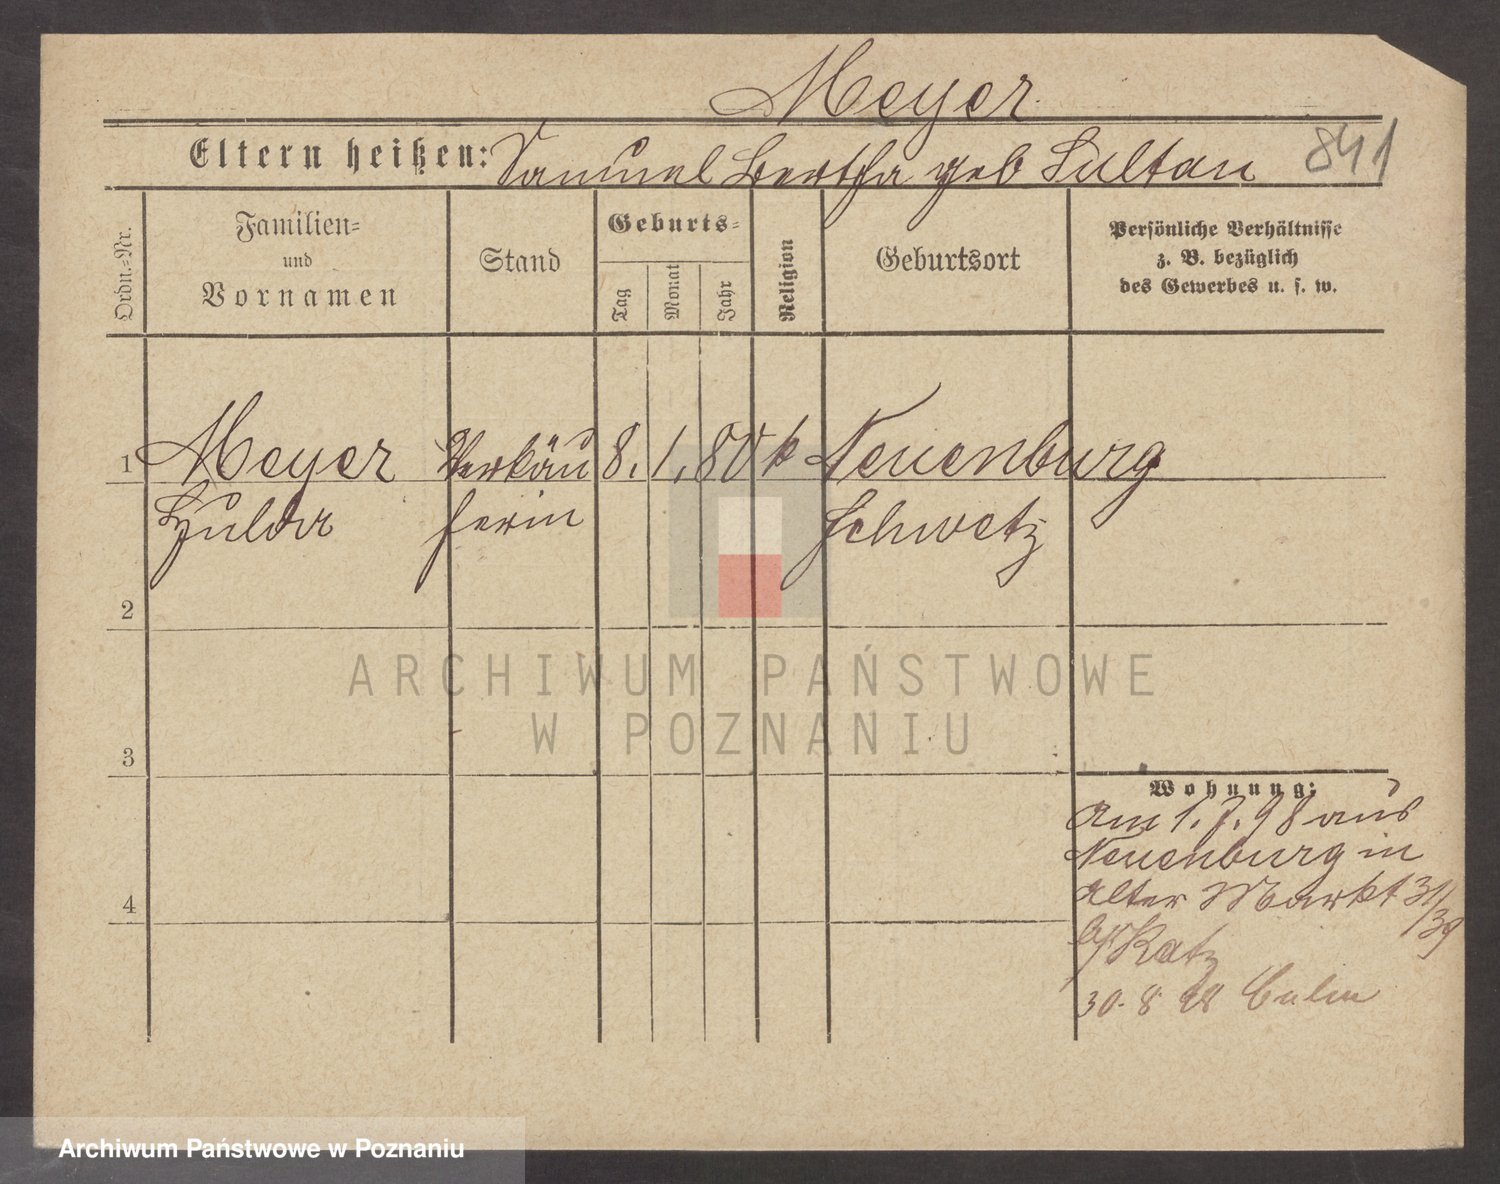 Meyer
841
Eltern heißen: Samuel Bertha geb Sultan
Ordn.-Nr.
Familien-
und
Vornamen
Stand
Geburts-
Tag
Monat
Jahr
Religion
Geburtsort
Persönliche Verhältnisse
z. B. bezüglich
des Gewerbes u. s. w.
1 Meyer Verkäu 8. 1. 80 k Neuenburg
Hulda ferin Schwetz
2
ARCHIWUM PAŃSTWOWE
W POZNANIU
3
Wohnung:
am 1. 7. 98 aus
Neuenburg in
Alter Markt 31/39
b/ Katz
4
30. 8 98 Culm
Archiwum Państwowe w Poznaniu